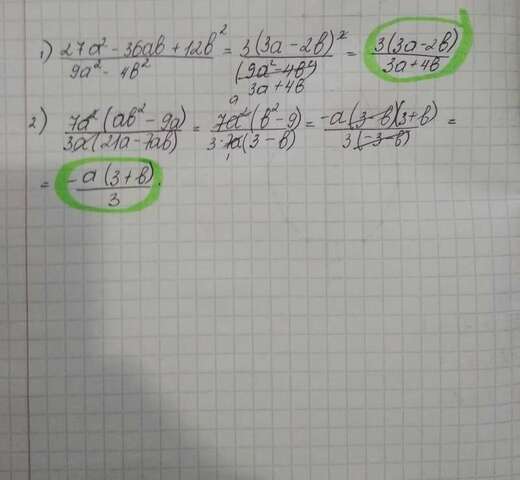 1) 27a² - 36ab + 12b² / 9a² - 4b² = 3(3a - 2b)² / (9a² - 4b²) 3a + 4b = 3(3a - 2b) / 3a + 4b
2) 7a²(ab² - 9a) / 3a(21a - 7ab) = 7a²(b² - 9) / 3·7a(3 - b) = -a(3 - b)(3 + b) / 3(-3 - b) =
= -a(3 + b) / 3.